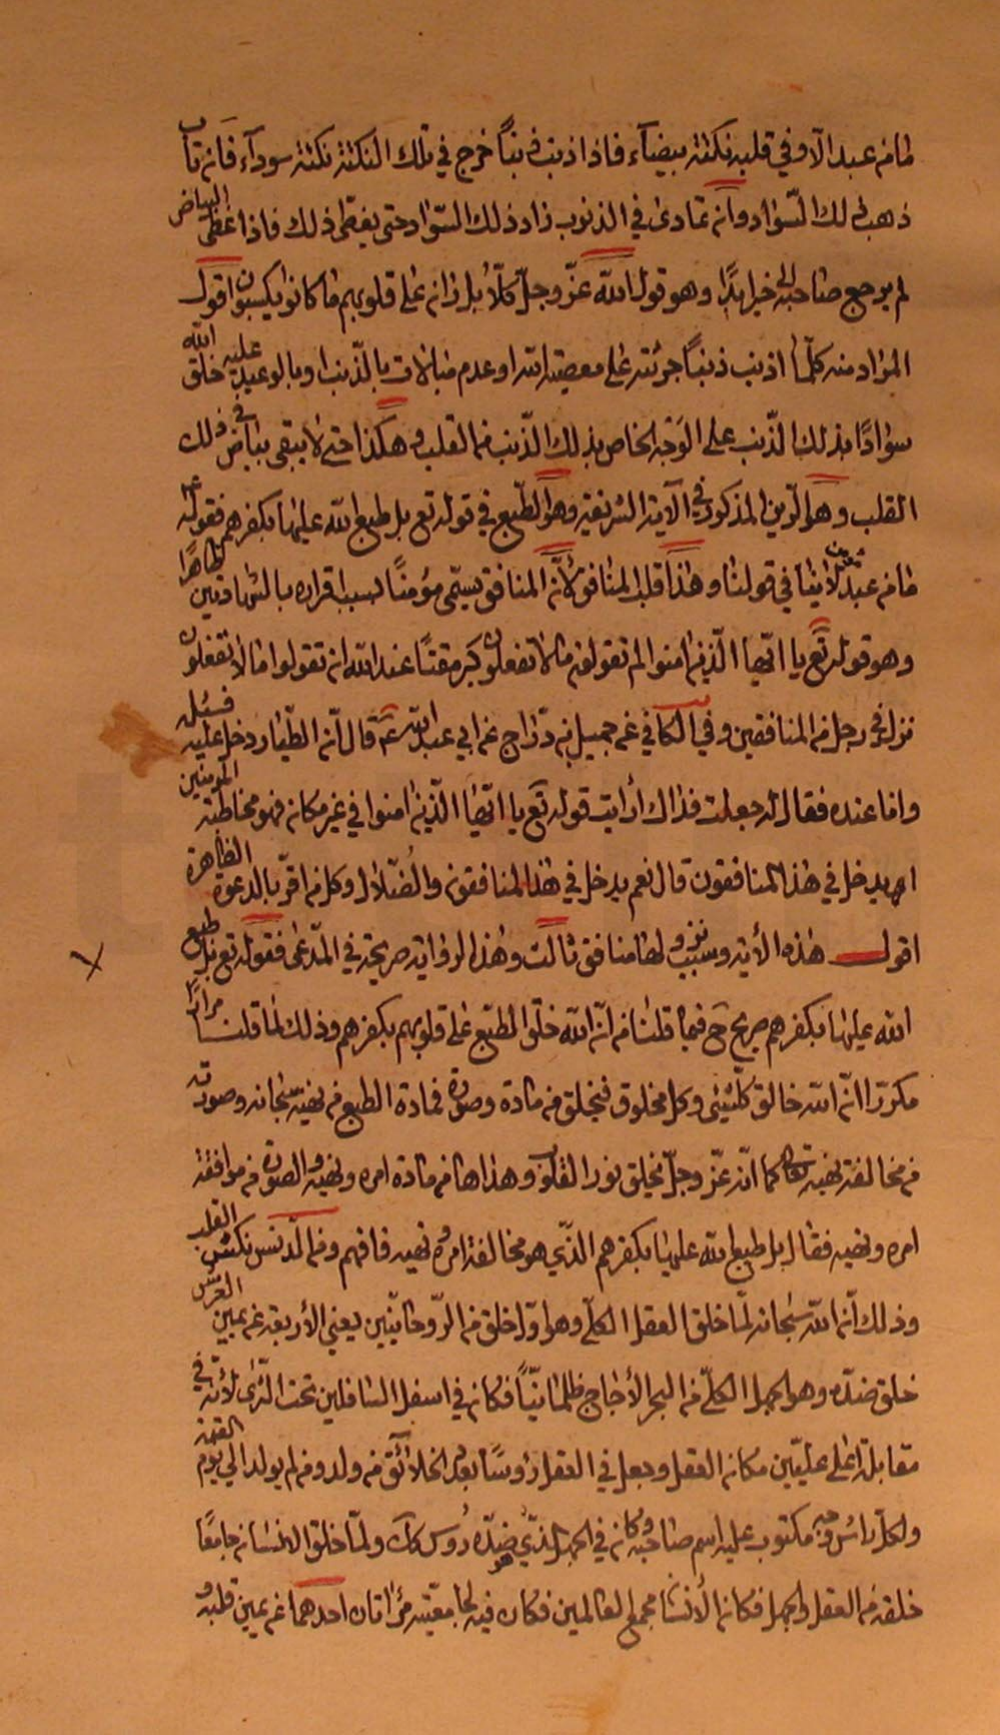 ما من عبد الا و في قلبه نكتة بيضآء فاذا اذنب ذنباً خرج في تلك النكتة نكتة سودآء فان تاب
ذهب ذلك السّواد و ان تمادى في الذنوب زاد ذلك السّواد حتى يغطى ذلك فاذا غطى البياض
لم يرجع صاحبه الى خير ابدًا و هو قول الله عزّ و جلّ كلّا بل ران على قلوبهم ما كانوا يكسبون اقول
المراد منه كلّما اذنب ذنباً جرئته على معصيته الله او عدم مبالات بالذّنب او بالوعيد عليه خلق الله
سوادًا بذلك الذّنب على الوَجْه الخاص بذلك الذّنب في القلب و هكذا حتى لا يبقى بياض في ذلك
القلب و هو الرّين المذكور في الآية الشريفة و هو الطّبع في قوله تع بل طبع الله عليها بكفرهم فقوله ع
ما من عبد مؤمن لا ينافي قولنا و هذا قلب المنافق لأنّ المنافق يسمّى مؤمنًا بسبب اقراره بالشهادتين ظاهرًا
و هو قوله تع يا ايّها الّذين امنوا لم تقولون ما لا تفعلون كبر مقتًا عند الله ان تقولوا ما لا تفعلون
نزل في رجل من المنافقين و في الكافي عن جميل بن درّاج عن ابي عبد الله ع قال انّ الطّيار دخل عليه فسئله
و انا عنده فقال له جعلت فداك أرايت قوله تع يا ايّها الّذين امنوا في غير مكان في مخاطبته المؤمنين
ايدخل في هذا المنافقون قال نعم يدخل في هذا المنافقون و الضُّلّال و كل من اقرّ بالدعوة الظاهرة
اقول هذه الأية و سبب نزولها منافق ثالث و هذا الرواية صريحة في المدّعى فقوله تع بل طبع
الله عليها بكفرهم صريح ح فيما قلنا من انّ الله خلق الطّبع على قلوبهم بكفرهم و ذلك لما قلنا مرارًا
مكرّرا انّ الله خالق كلّ شئ و كل مخلوق فيخلق من مادة و صورة فمادة الطبع من نهيه سبحانه و صورته
من مخالفة نهيه كما انّه عزّ و جلّ يخلق نور القلوب و هذاها من مادة امره و نهيه و الصورة من موافقة
امره و نهيه فقال بل طبع الله عليها بكفرهم الّذي هو مخالفة امره و نهيه فافهم و في التّدنّس ينكس القلب
و ذلك انّ الله سبحانه لمّا خلق العقل الكلّي و هو اوّل خلق من الرّوحانيّين يعني الأربعة عن يمين العرش
خلق ضدّه و هو الجهل الكلّي من البحر الأجاج ظلمانيّاً فكان في اسفل السّافلين تحت الثّرى لأنّه في
مقابلة اعلى عليّين مكان العقل و جعل في العقل رؤوسًا بعدد الخلآئق من ولد و من لم يولد الى يوم القيمة
و لكلّ رأس وجه مكتوب عليه اسم صاحبه و كان في الجهل الّذي هو ضدّه رُوس كك و لمّا خلق الإنسان جامعًا
خلقه من العقل و الجهل فكان الأنسان مجمع العالمين فكان فيه لجامعيّته مرْاتان احدهما عن يمين قلبه و